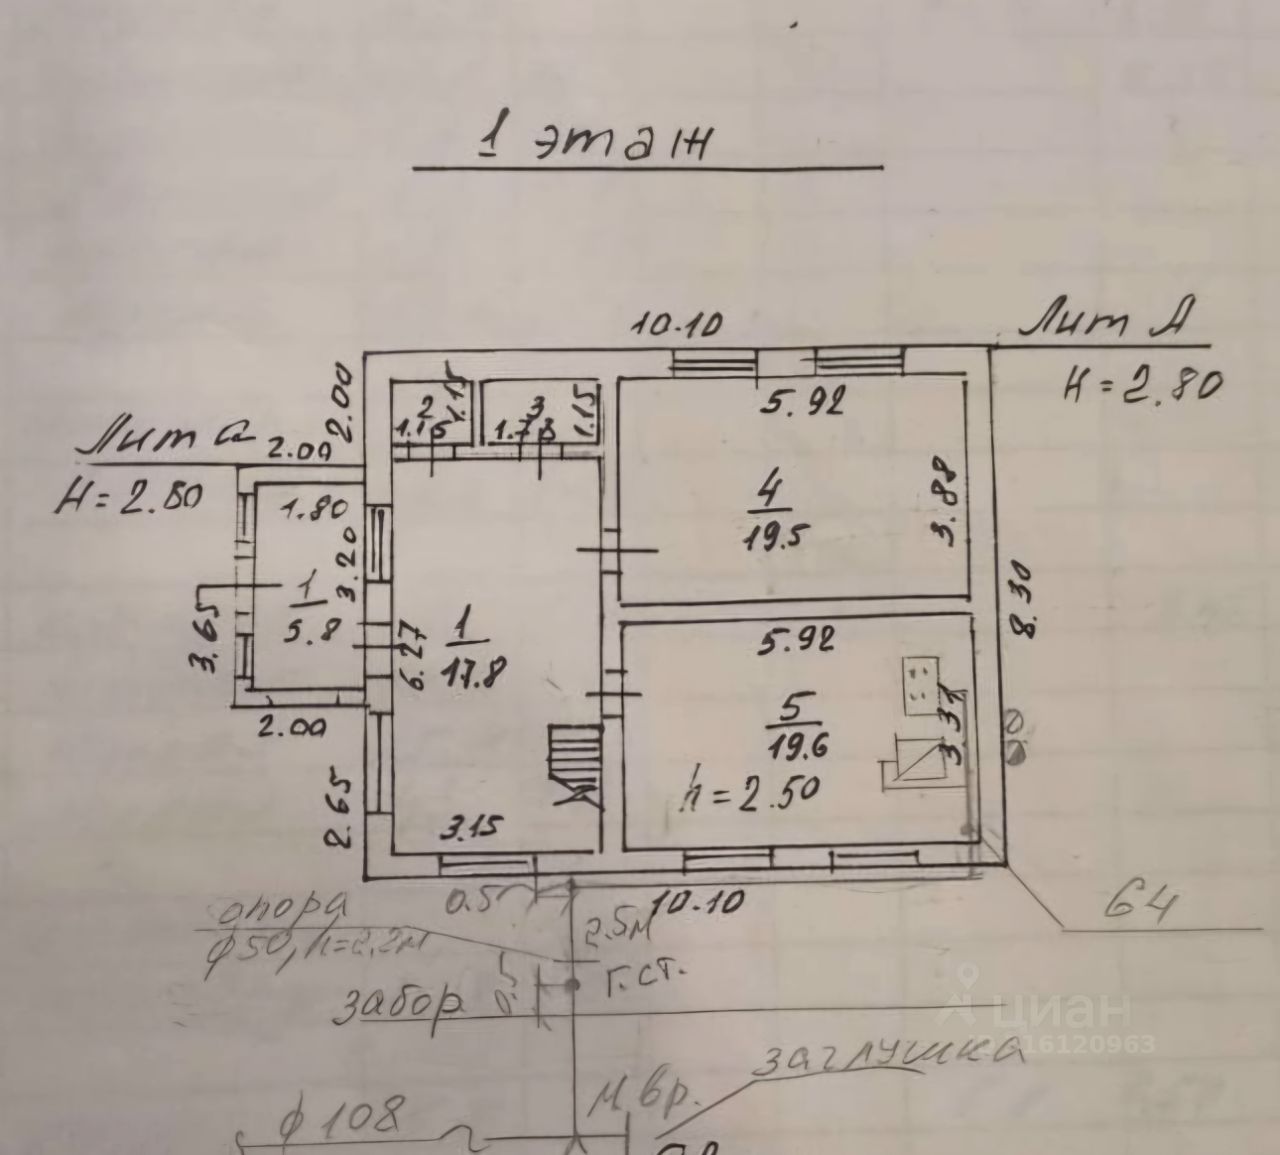 1 этаж
10.10
Лит А
H=2.80
2.00
Лит а
2.00
H=2.50
2
1.15
1.15
3
1.73
1.15
5.92
4
19.5
3.88
1.80
3.20
1
5.8
3.65
2.00
6.27
1
17.8
8.30
5.92
5
19.6
3.31
h=2.50
2.65
3.15
0.5
10.10
опора
ф50, h=2,2м
2.5м
Г.ст.
0.5
забор
G4
циан
16120963
заглушка
м вр.
ф 108